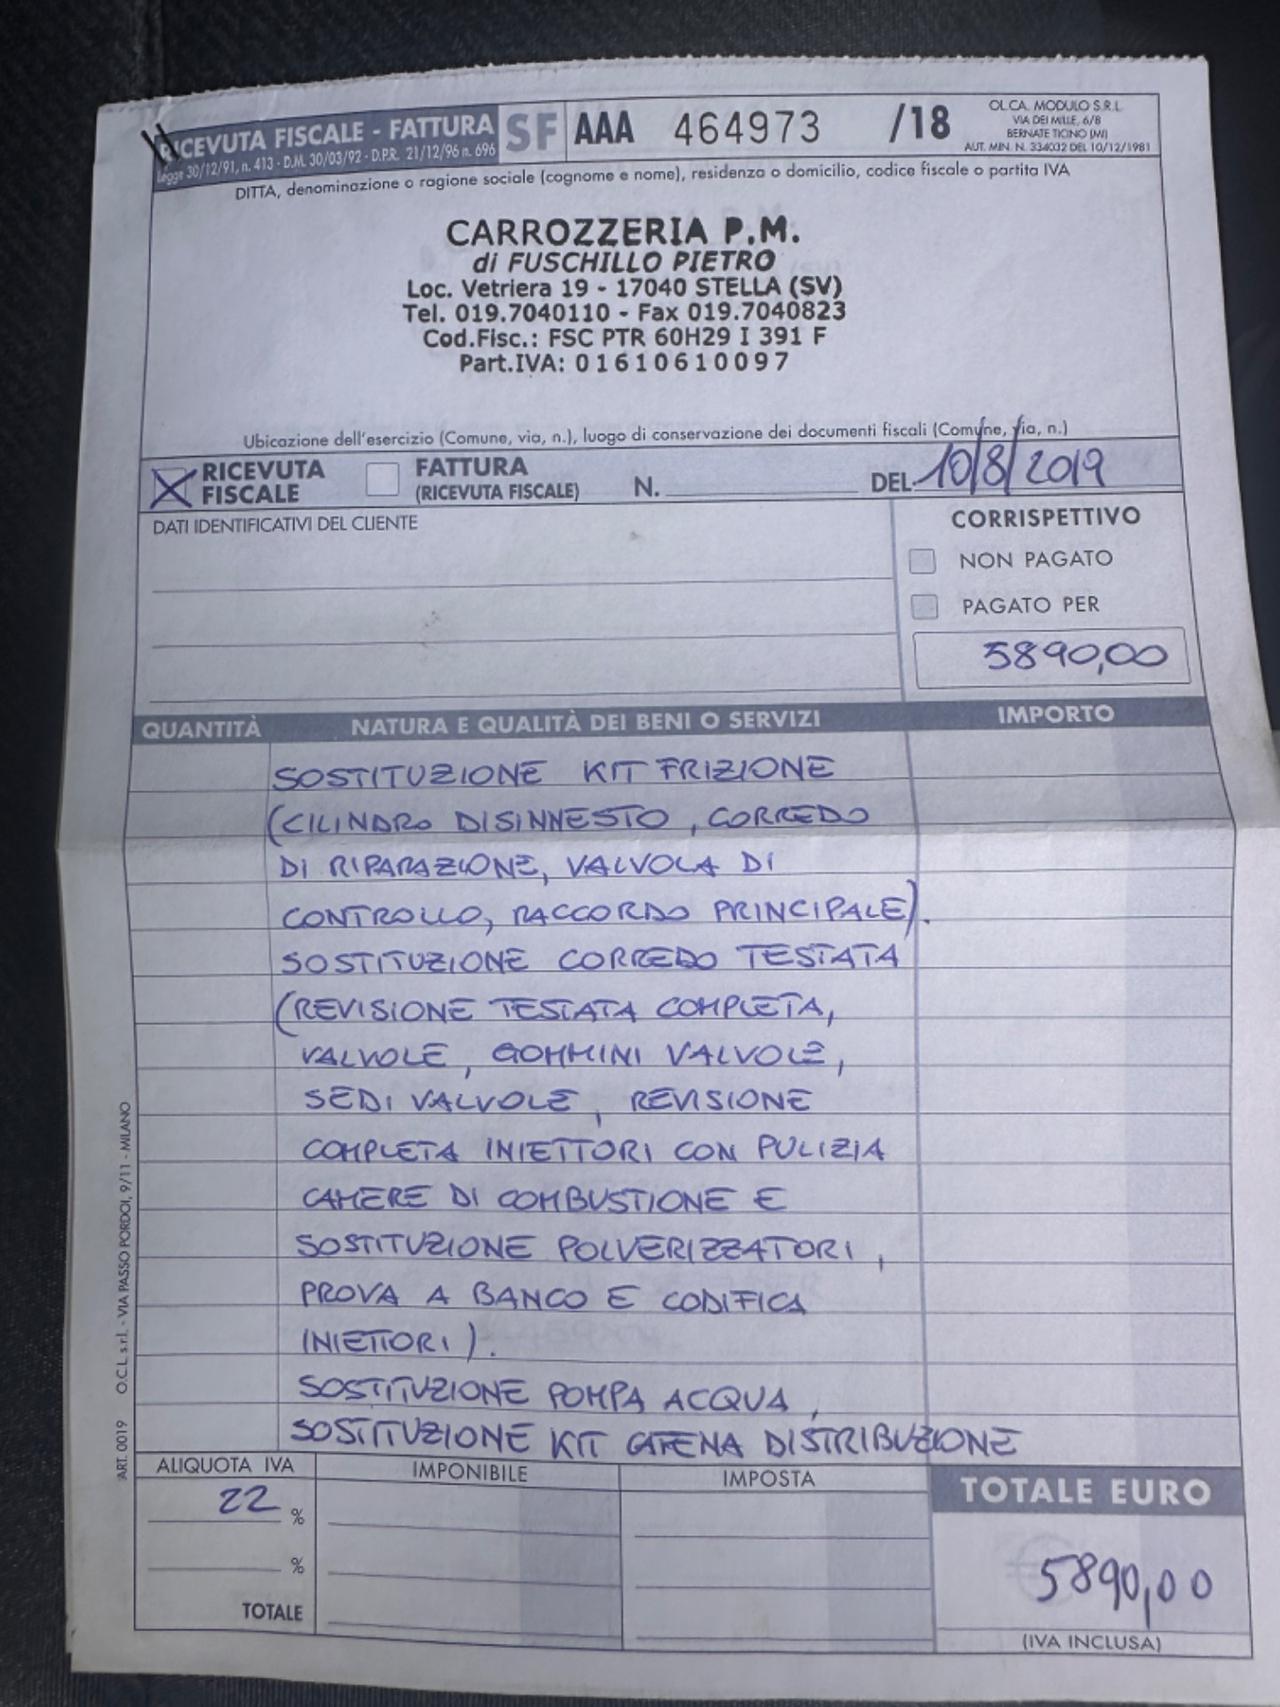 RICEVUTA FISCALE - FATTURA
Legge 30/12/91, n. 413 - D.M. 30/03/92 - D.P.R. 21/12/96 n. 696
SF AAA 464973 /18
OL.CA. MODULO S.R.L.
VIA DEI MILLE, 6/8
BERNATE TICINO (MI)
AUT. MIN. N. 334032 DEL 10/12/1981
DITTA, denominazione o ragione sociale (cognome e nome), residenza o domicilio, codice fiscale o partita IVA
CARROZZERIA P.M.
di FUSCHILLO PIETRO
Loc. Vetriera 19 - 17040 STELLA (SV)
Tel. 019.7040110 - Fax 019.7040823
Cod.Fisc.: FSC PTR 60H29 I 391 F
Part.IVA: 01610610097
Ubicazione dell'esercizio (Comune, via, n.), luogo di conservazione dei documenti fiscali (Comune, via, n.)
RICEVUTA FISCALE
FATTURA (RICEVUTA FISCALE)
N.
DEL 10/8/2019
DATI IDENTIFICATIVI DEL CLIENTE
CORRISPETTIVO
NON PAGATO
PAGATO PER
5890,00
QUANTITÀ NATURA E QUALITÀ DEI BENI O SERVIZI IMPORTO
SOSTITUZIONE KIT FRIZIONE
(CILINDRO DISINNESTO, CORREDO
DI RIPARAZIONE, VALVOLA DI
CONTROLLO, RACCORDO PRINCIPALE).
SOSTITUZIONE CORREDO TESTATA
(REVISIONE TESTATA COMPLETA,
VALVOLE, GOMMINI VALVOLE,
SEDI VALVOLE, REVISIONE
COMPLETA INIETTORI CON PULIZIA
CAMERE DI COMBUSTIONE E
SOSTITUZIONE POLVERIZZATORI,
PROVA A BANCO E CODIFICA
INIETTORI).
SOSTITUZIONE POMPA ACQUA,
SOSTITUZIONE KIT CATENA DISTRIBUZIONE
ART. 0019 O.C.L. s.r.l. - VIA PASSO PORDOI, 9/11 - MILANO
ALIQUOTA IVA IMPONIBILE IMPOSTA TOTALE EURO
22 %
%
TOTALE
5890,00
(IVA INCLUSA)